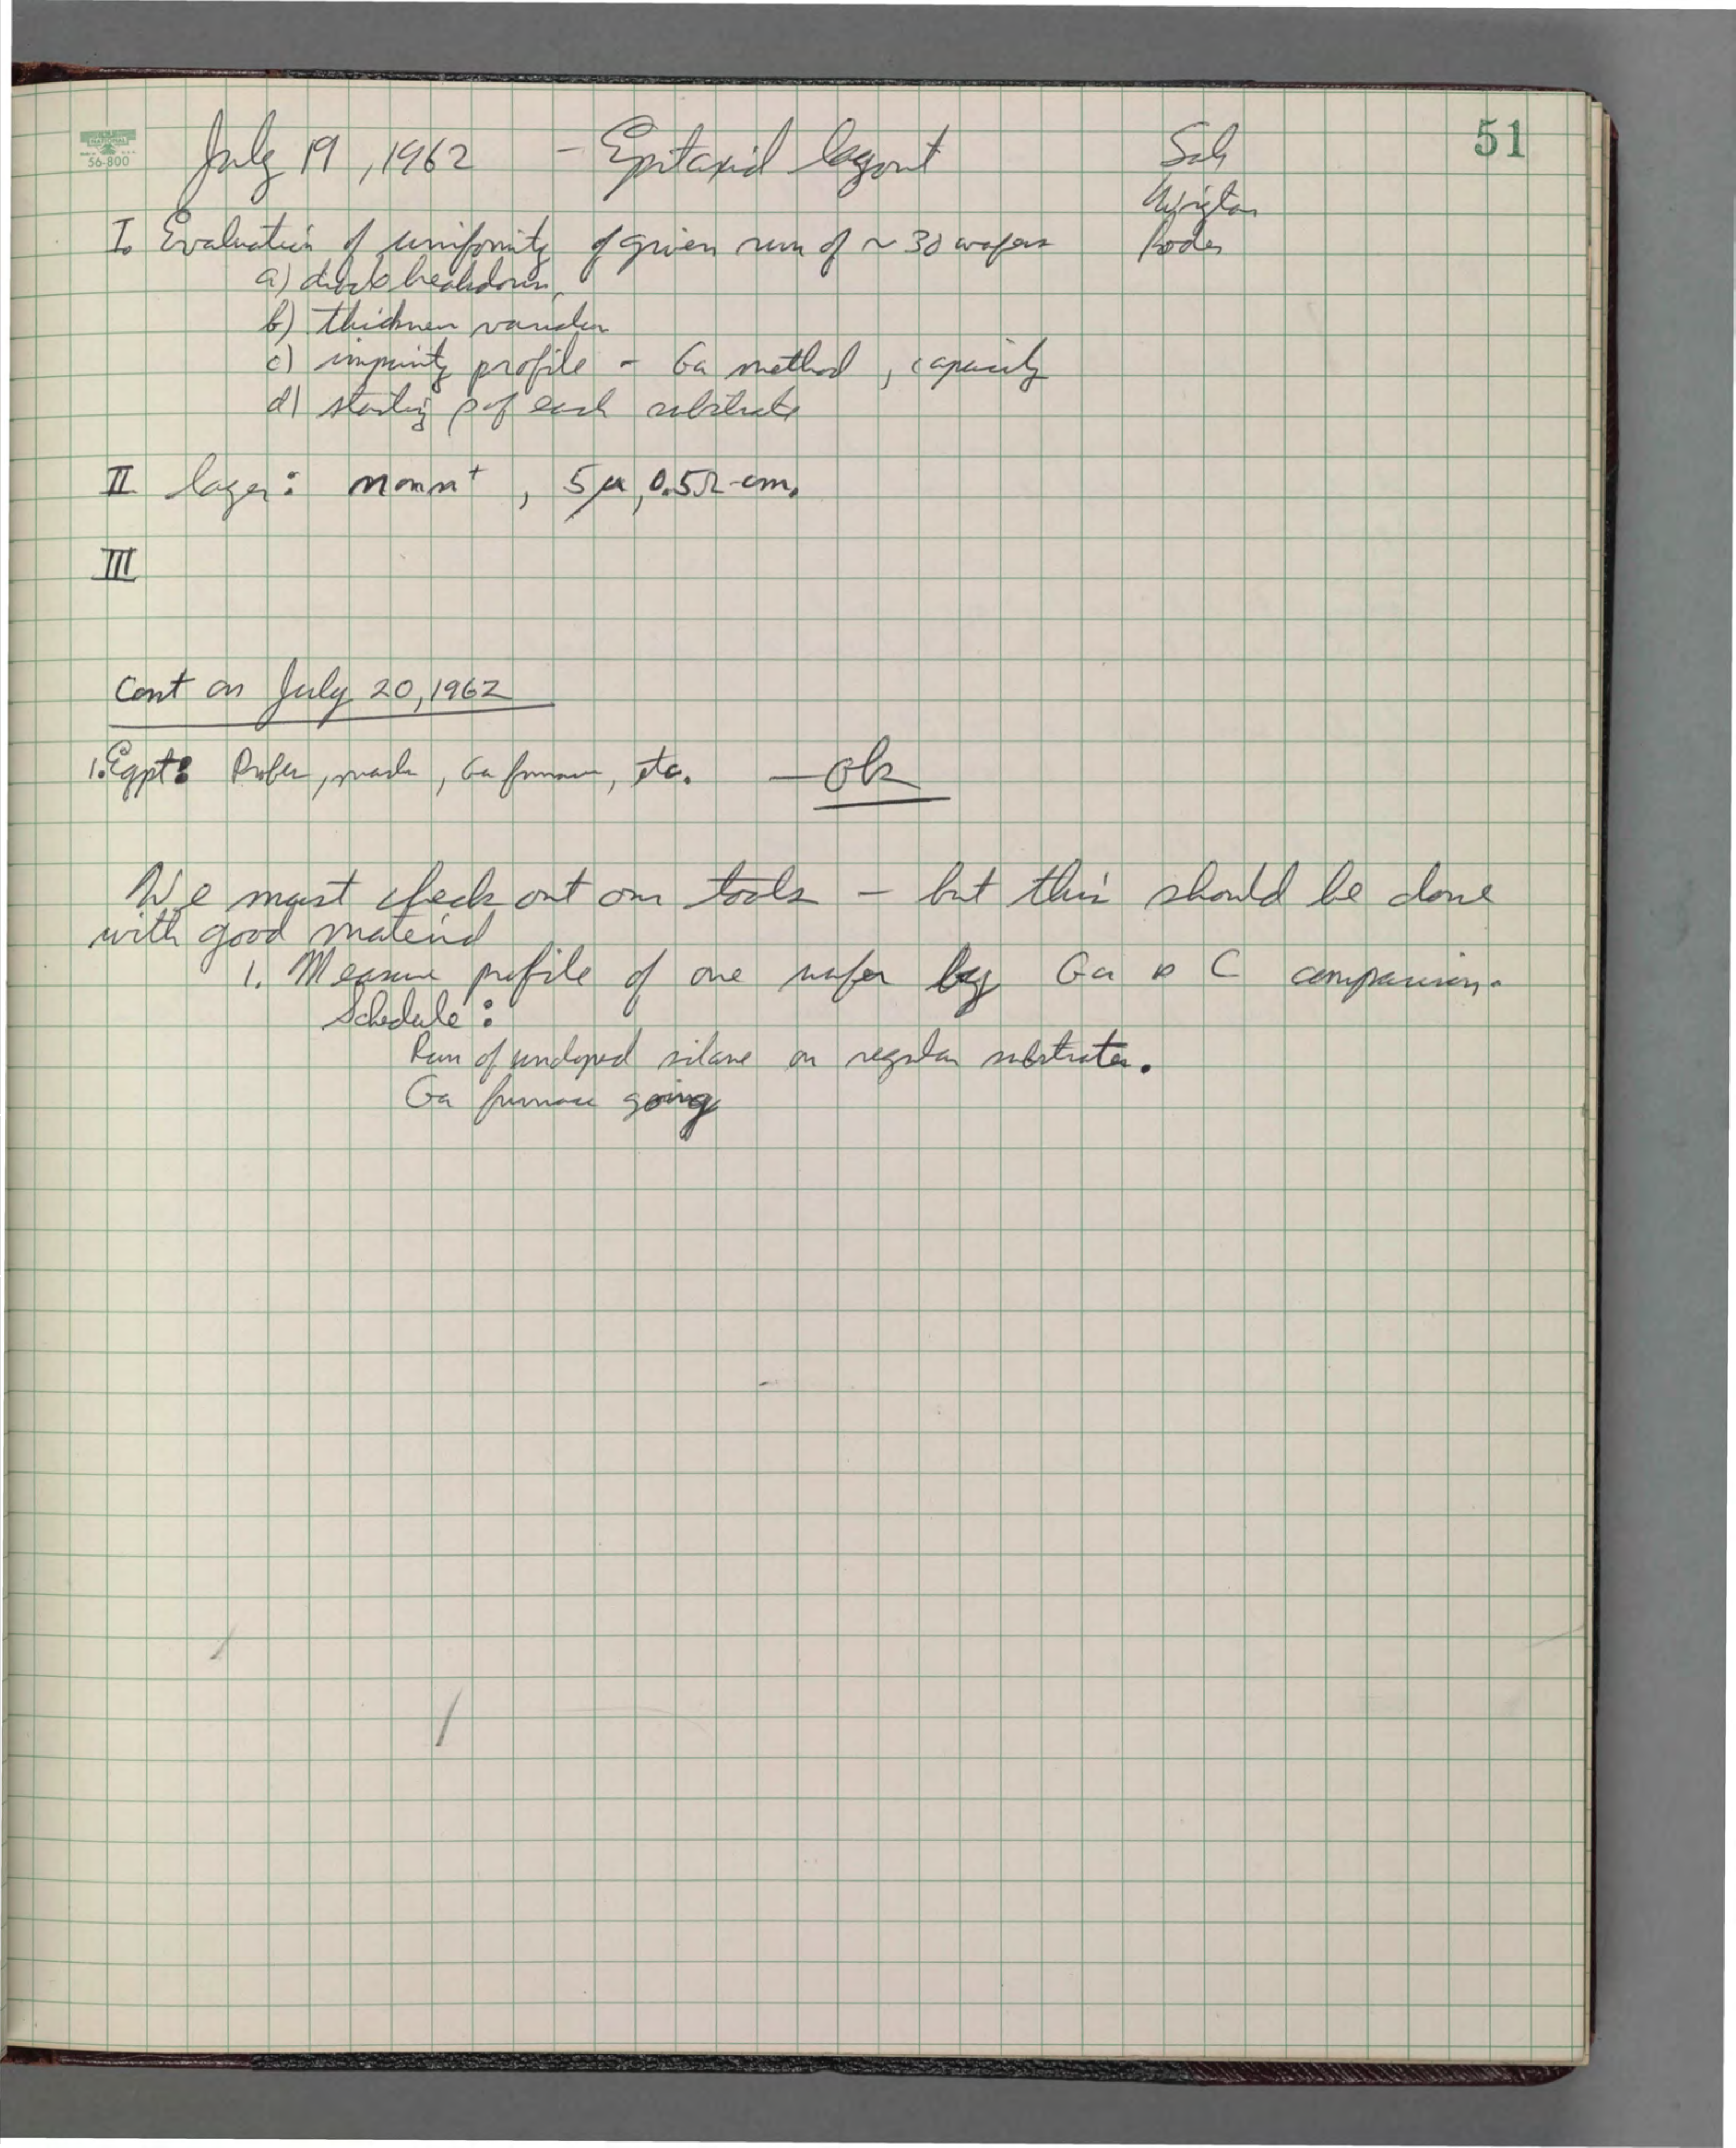 51
NATIONAL
56-800
July 19, 1962 - Epitaxial layout
Sah
I. Evaluation of uniformity of given run of ~ 30 wafers
a) diode breakdown,
b) thickness variation
c) impurity profile - Ga method, capacity
d) starting ρ of each substrate
II layer: n on n+, 5μ, 0.5Ω-cm.
III
Cont on July 20, 1962
1. Eqpt: Probes, masks, Ga furnace, etc. — Ok
We must check out our tools — but this should be done
with good material
1. Measure profile of one wafer by Ga vs C comparison.
Schedule:
Run of undoped silane on regular substrates.
Ga furnace going